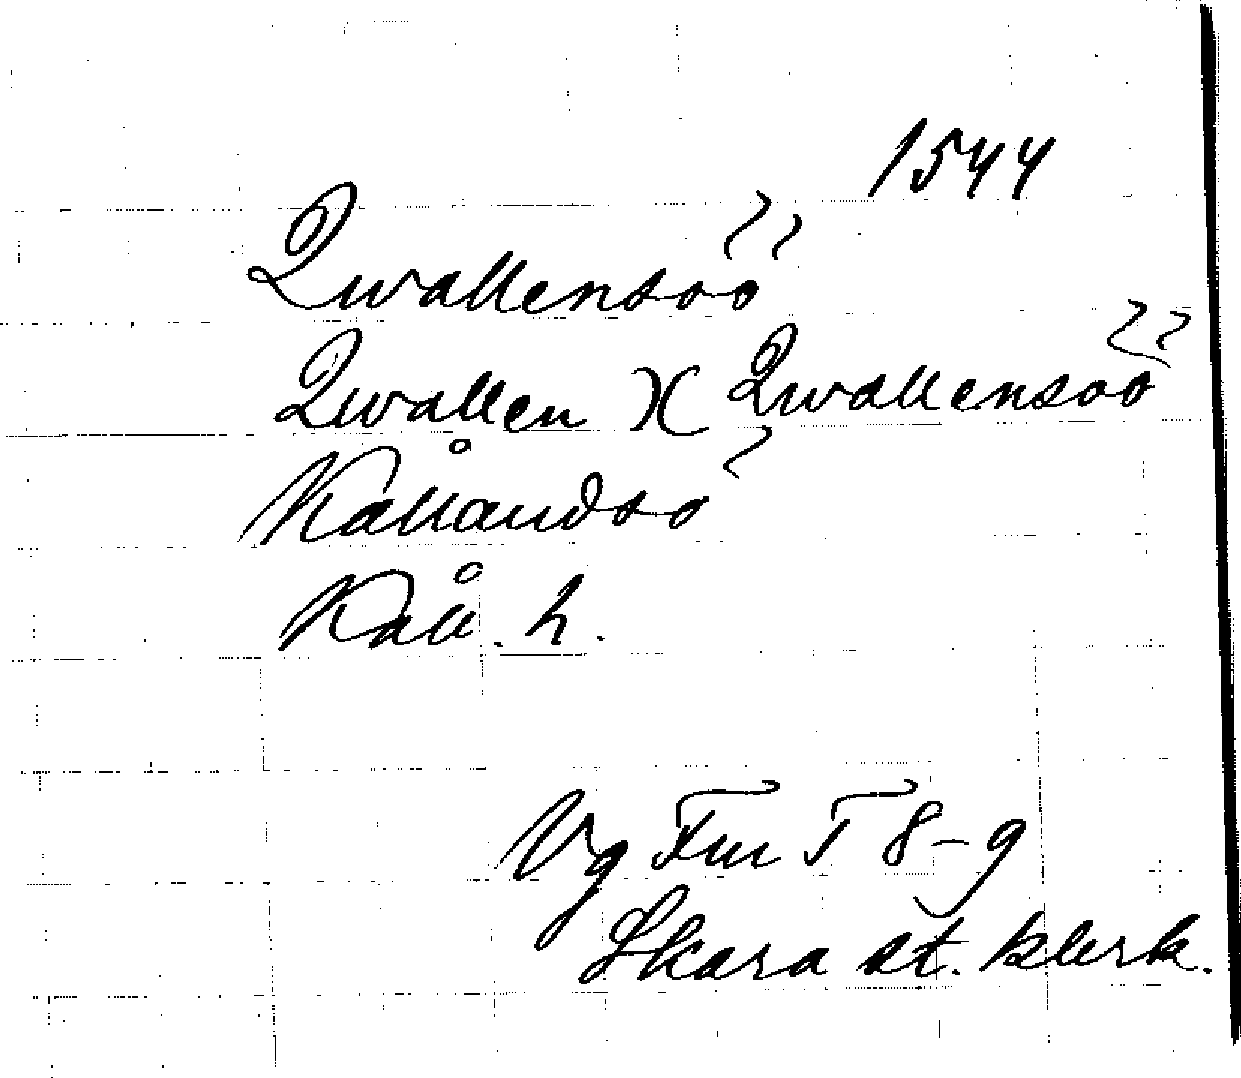 1544
Qwallensöö
Qwallen X Qwallensöö
Kållandsö
Kåll. h.
Vg Fm T 8-9
Skara st. klerk.